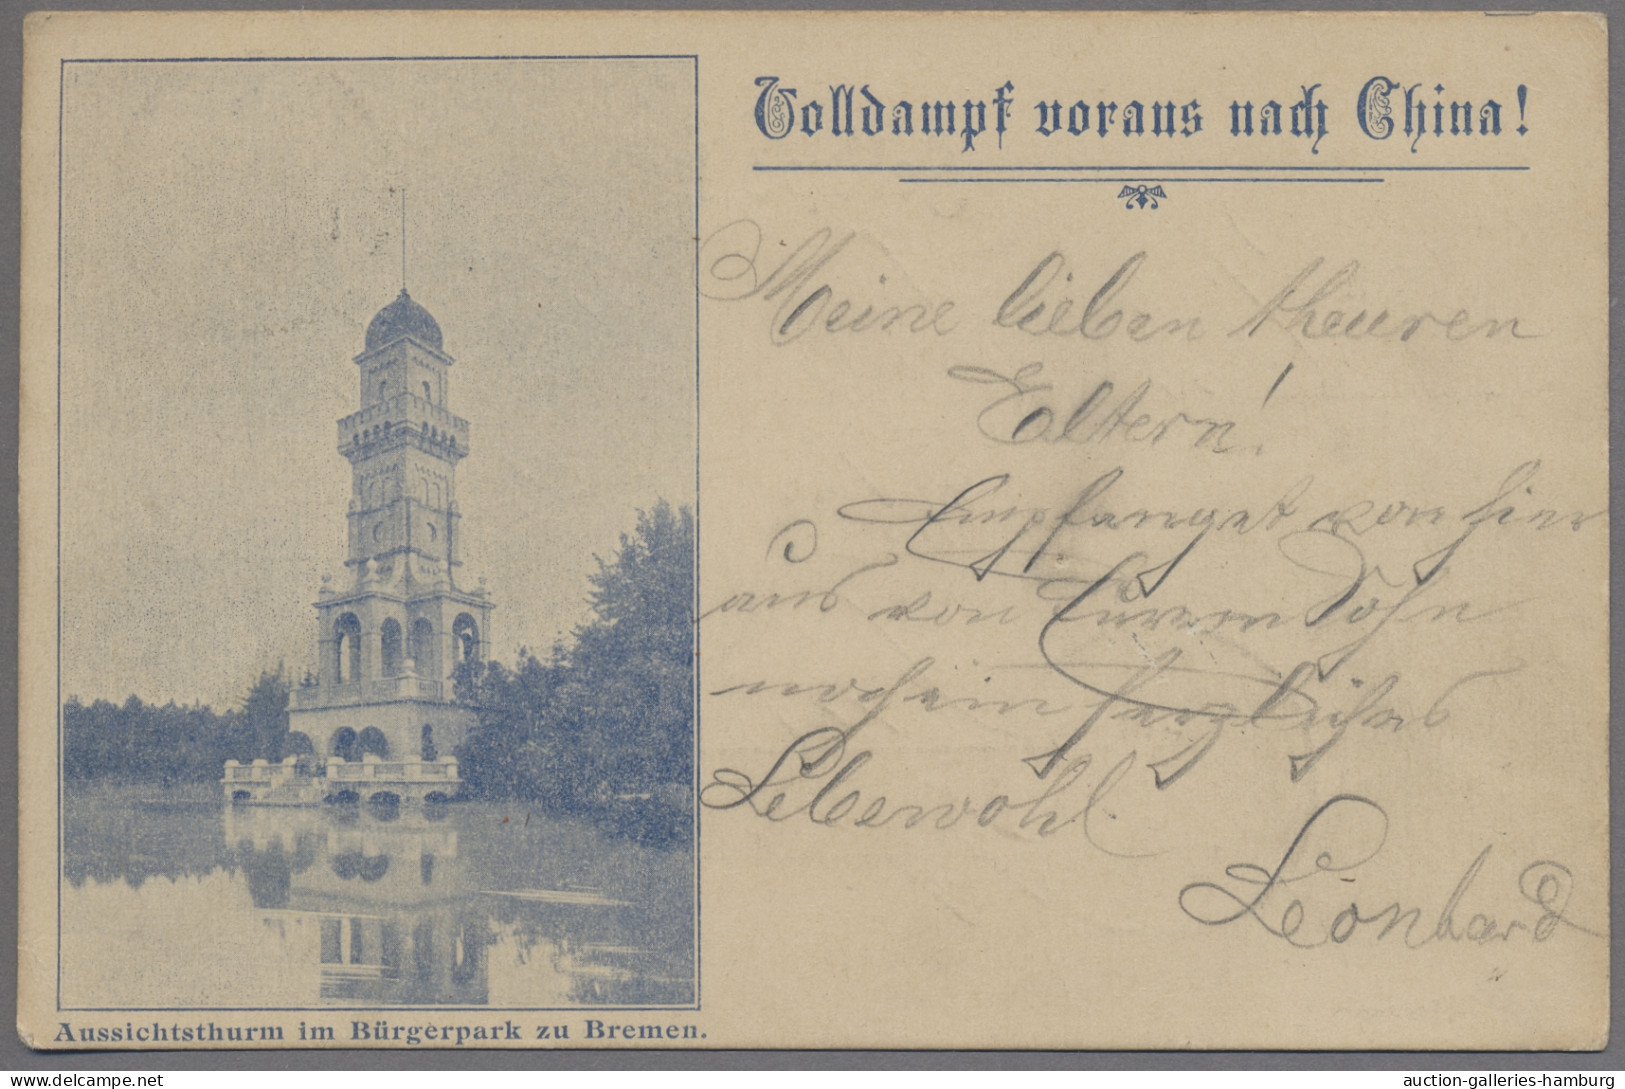 Volldampf voraus nach China!
Meine lieben theuren
Eltern!
Empfanget von hier
aus von Eurem Sohn
noch ein herzliches
Lebewohl
Leonhard
Aussichtsthurm im Bürgerpark zu Bremen.
delcampe.net
auction-galleries-hamburg